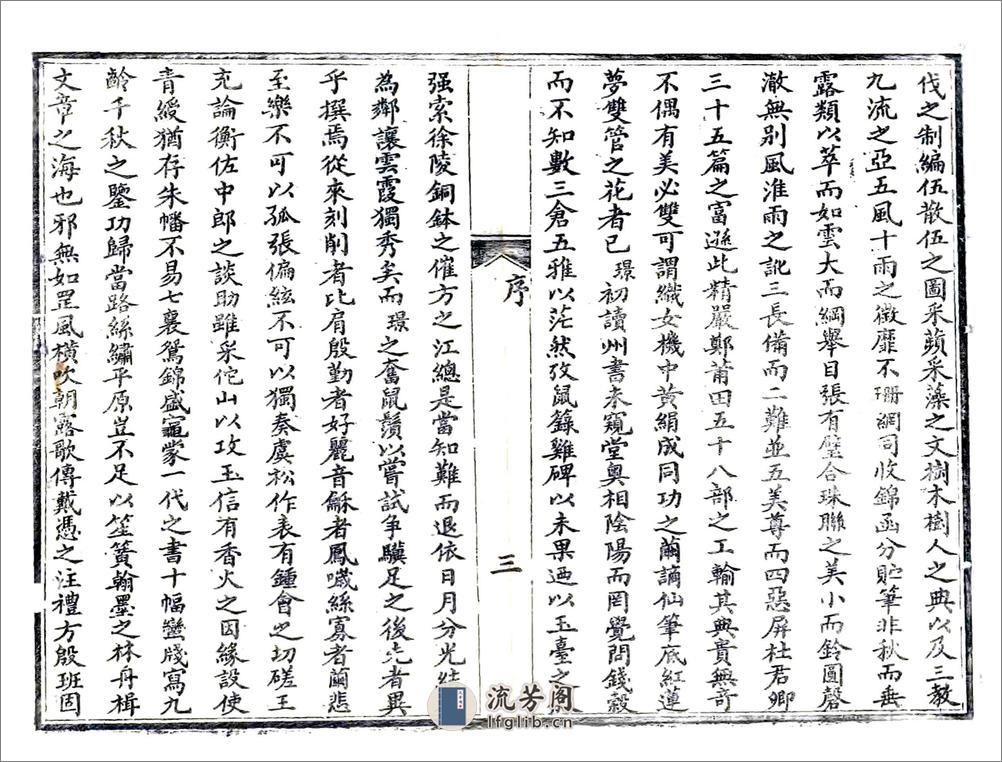 伐之制編伍散伍之圖采蘋采藻之文樹木樹人之典以及三教
九流之亞五風十雨之徵靡不珊網同收錦函分貯筆非秋而垂
露類以萃而如雲大而綱舉目張有璧合珠聯之美小而鈴圓磬
澈無别風淮雨之訛三長備而二難並五美尊而四惡屏杜君卿
三十五篇之富遜此精嚴鄭莆田五十八部之工輸其典貴無奇
不偶有美必雙可謂織女機中黄絹成同功之繭謫仙筆底紅蓮
夢雙管之花者已璟初讀州書未窺堂奥相陰陽而罔覺問錢穀
而不知數三倉五雅以茫然攷鼠錄雞碑以未果迺以玉臺之
序
三
强索徐陵銅鉢之催方之江總是當知難而退依日月分光
為鄰讓雲霞獨秀矣而璟之奮鼠鬚以嘗試争驥足之後先者異
乎撰焉從來刻削者比肩殷勤者好麗音龢者鳳噦絲寡者蘭悲
至樂不可以孤張偏絃不可以獨奏虞松作表有鍾會之切磋王
充論衡佐中郎之談助雖采佗山以攻玉信有香火之因緣設使
青綬猶存朱幡不易七襄鴛錦盛竈蒙一代之書十幅蠻牋寫九
齡千秋之鑒功歸當路絲繡平原豈不足以笙簧翰墨之林舟楫
文章之海也邪無如罡風横吹朝露歌傳戴憑之注禮方殷班固
流芳阁
lfglib.cn